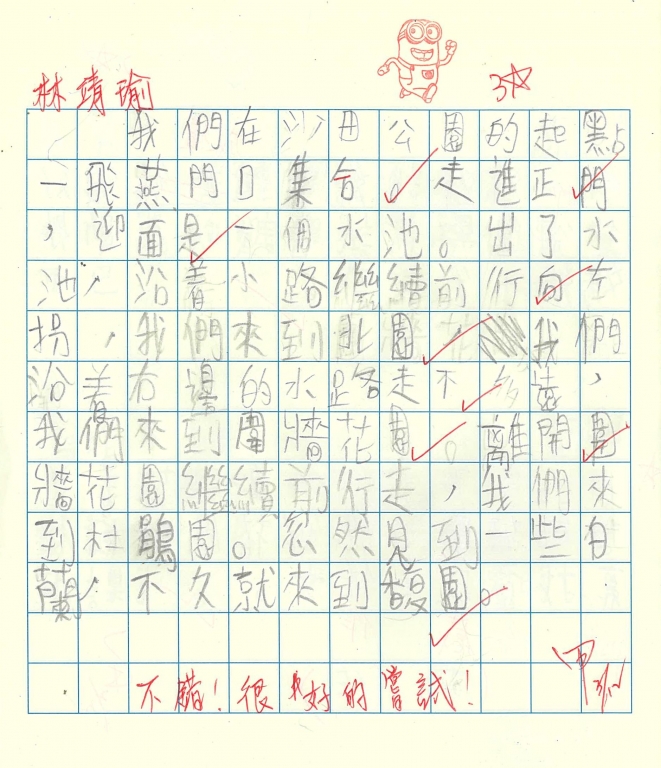 林靖瑜 3☆
我們在沙田公園的起點
一飛燕門口集合。走進正門
，迎面是一個水池。出了水
池，沿着小路繼續前行向左
拐，我們來到北園，我們
沿着右邊的水路走不多遠，
我們來到圍牆花園。離開圍
牆花園繼續前行走，我們來
到杜鵑園。忽然見到一些白
蘭，不久就來到馥園。
甲
不錯！很好的嘗試！